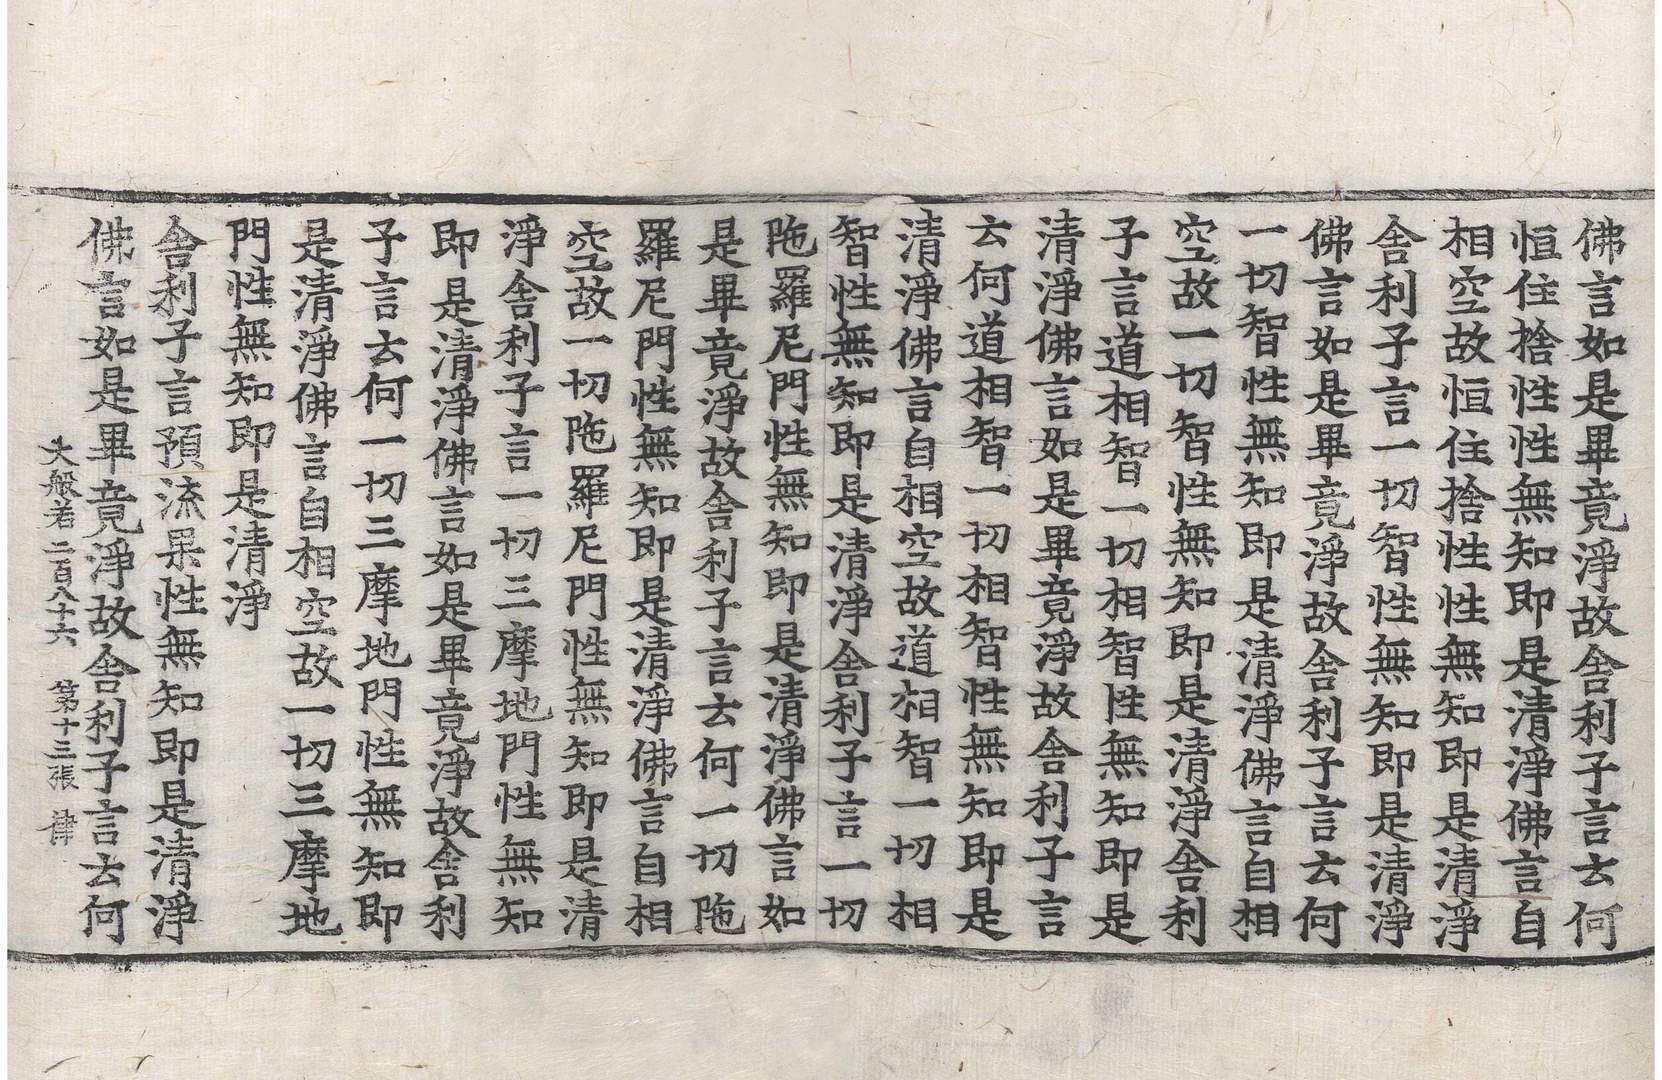 佛言如是畢竟淨故舍利子言云何
恒住捨性性無知即是清淨佛言自
相空故恒住捨性性無知即是清淨
舍利子言一切智性無知即是清淨
佛言如是畢竟淨故舍利子言云何
一切智性無知即是清淨佛言自相
空故一切智性無知即是清淨舍利
子言道相智一切相智性無知即是
清淨佛言如是畢竟淨故舍利子言
云何道相智一切相智性無知即是
清淨佛言自相空故道相智一切相
智性無知即是清淨舍利子言一切
陁羅尼門性無知即是清淨佛言如
是畢竟淨故舍利子言云何一切陁
羅尼門性無知即是清淨佛言自相
空故一切陁羅尼門性無知即是清
淨舍利子言一切三摩地門性無知
即是清淨佛言如是畢竟淨故舍利
子言云何一切三摩地門性無知即
是清淨佛言自相空故一切三摩地
門性無知即是清淨
舍利子言預流果性無知即是清淨
佛言如是畢竟淨故舍利子言云何
大般若二百八十六 第十三張 律